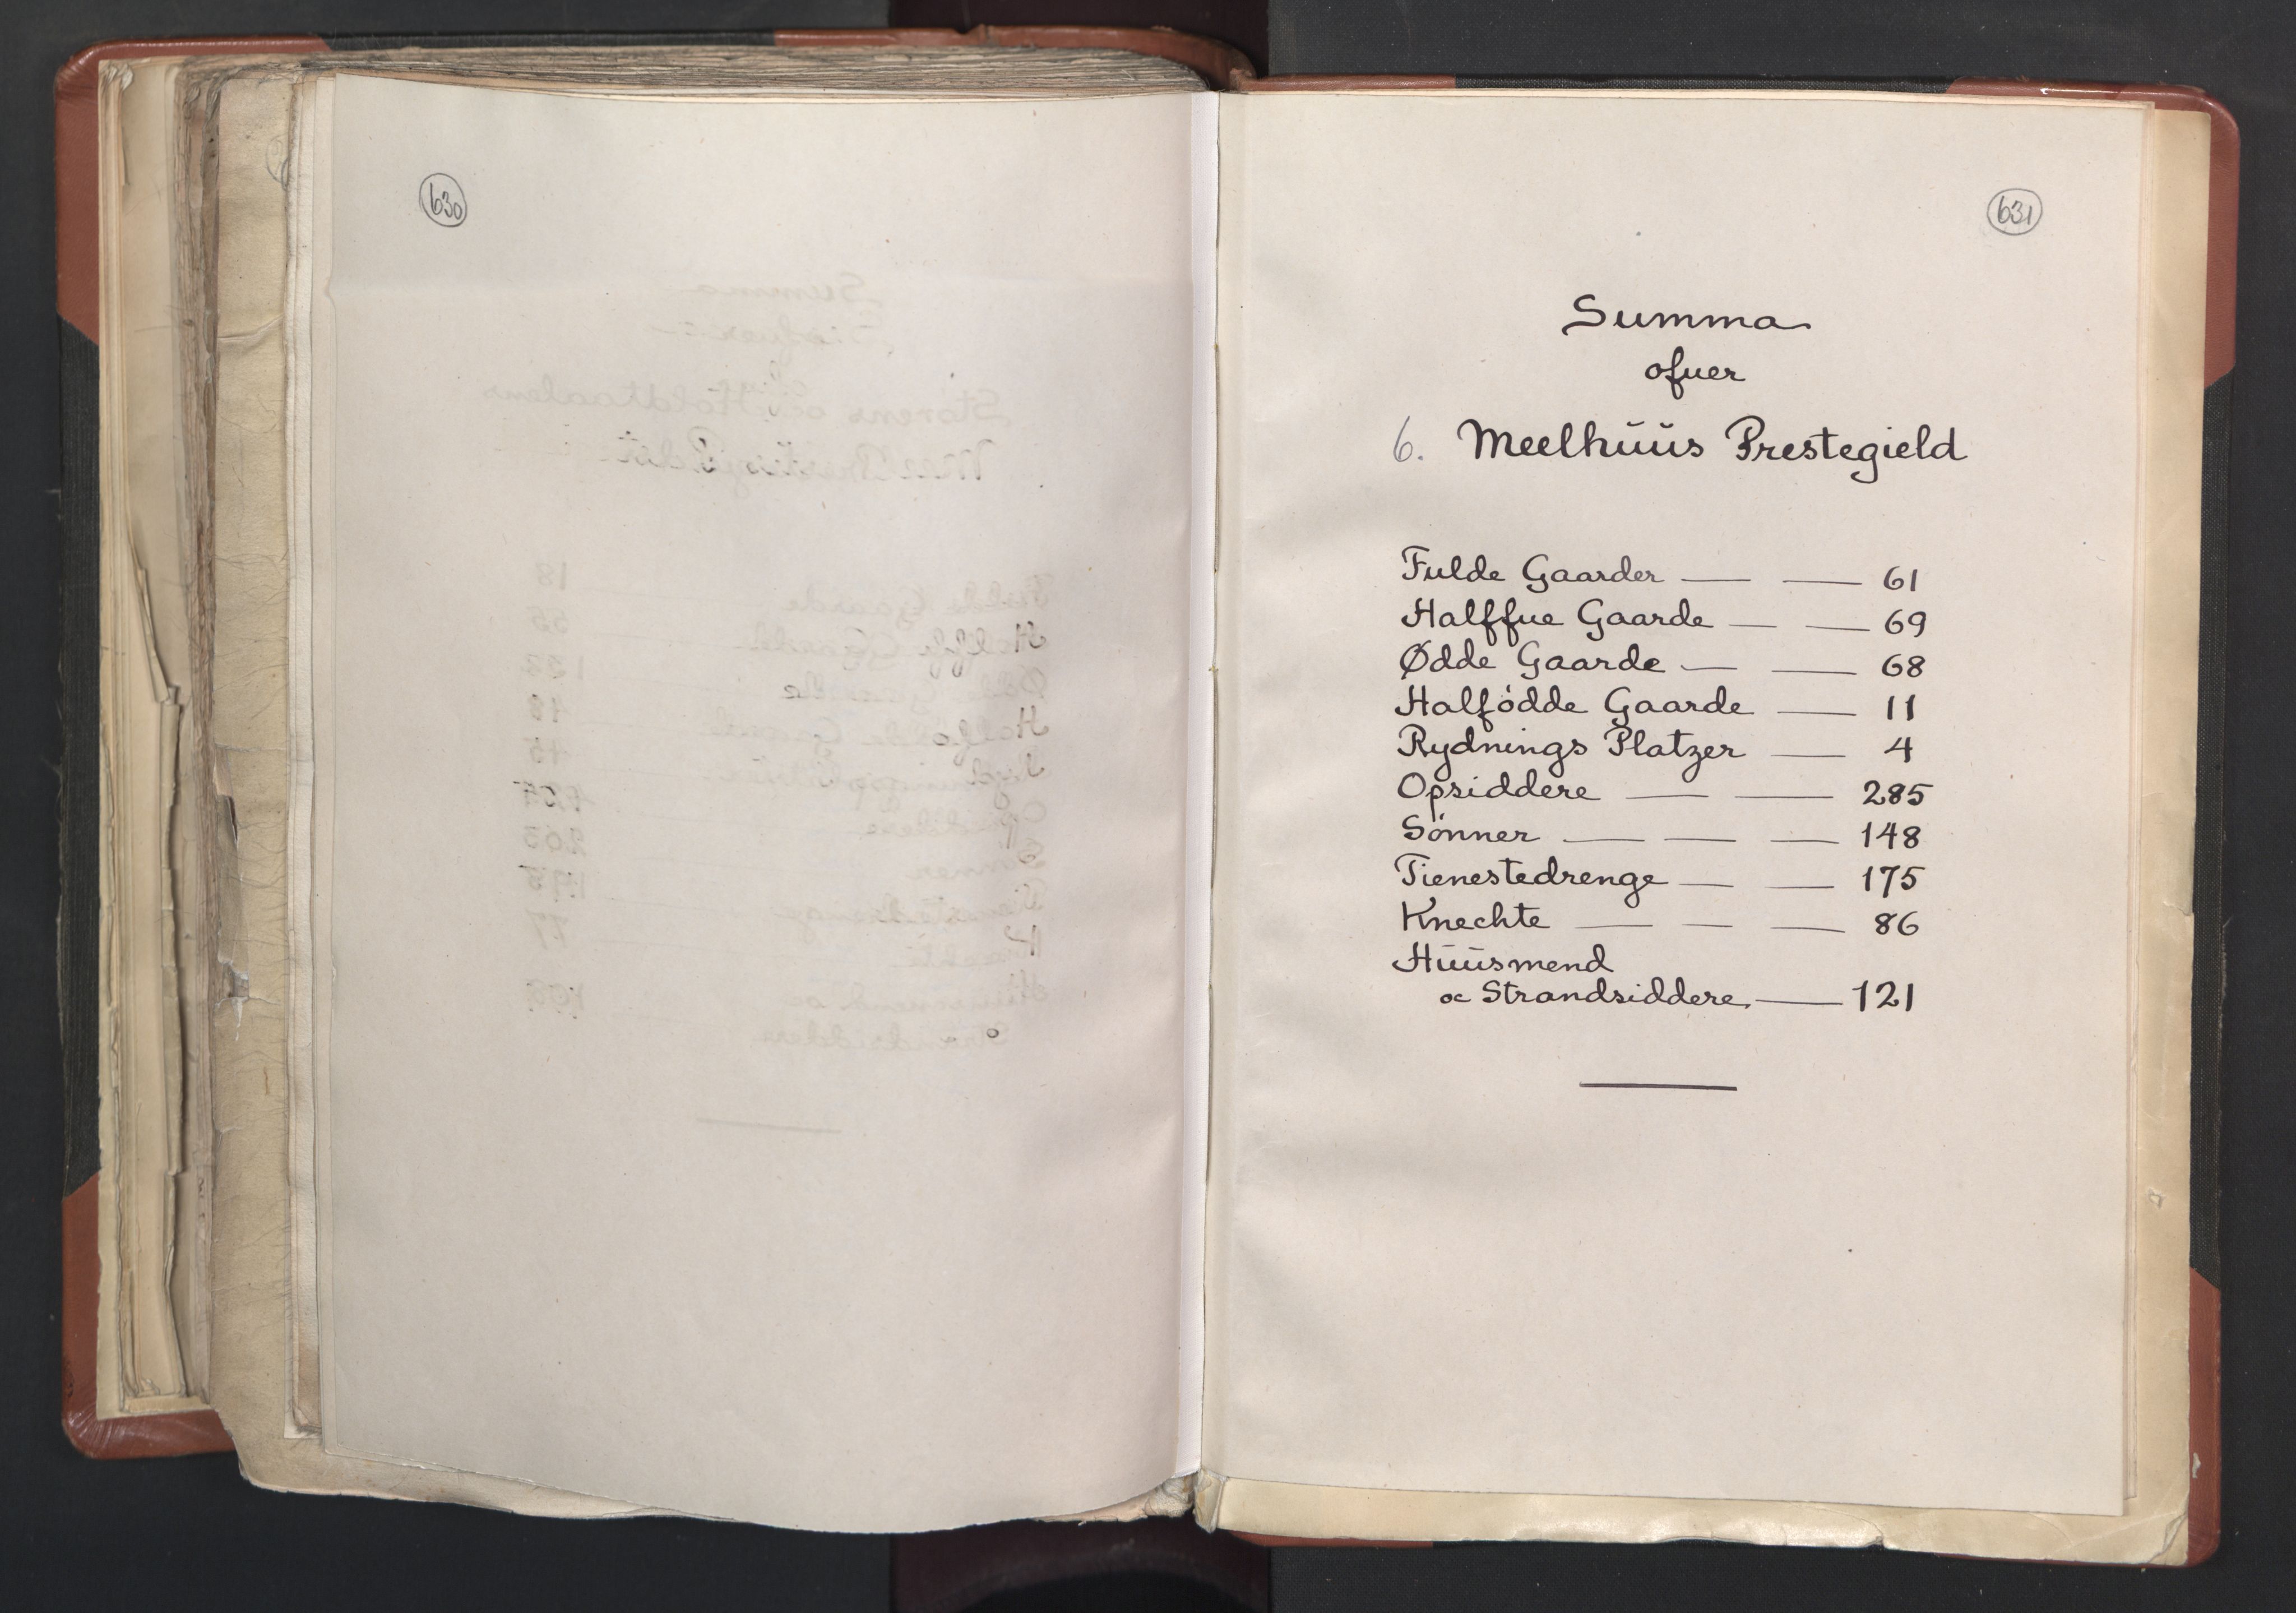 630
631
Summa
ofuer
6. Meelhüüs Prestegield
Fulde Gaarder — — 61
Halffue Gaarde — — 69
Ødde Gaarde — — 68
Halfødde Gaarde — 11
Rydnings Platzer — 4
Opsiddere — — 285
Sønner — — — 148
Tienestedrenge — — 175
Knechte — — — 86
Hüüsmend
oc Strandsiddere — 121